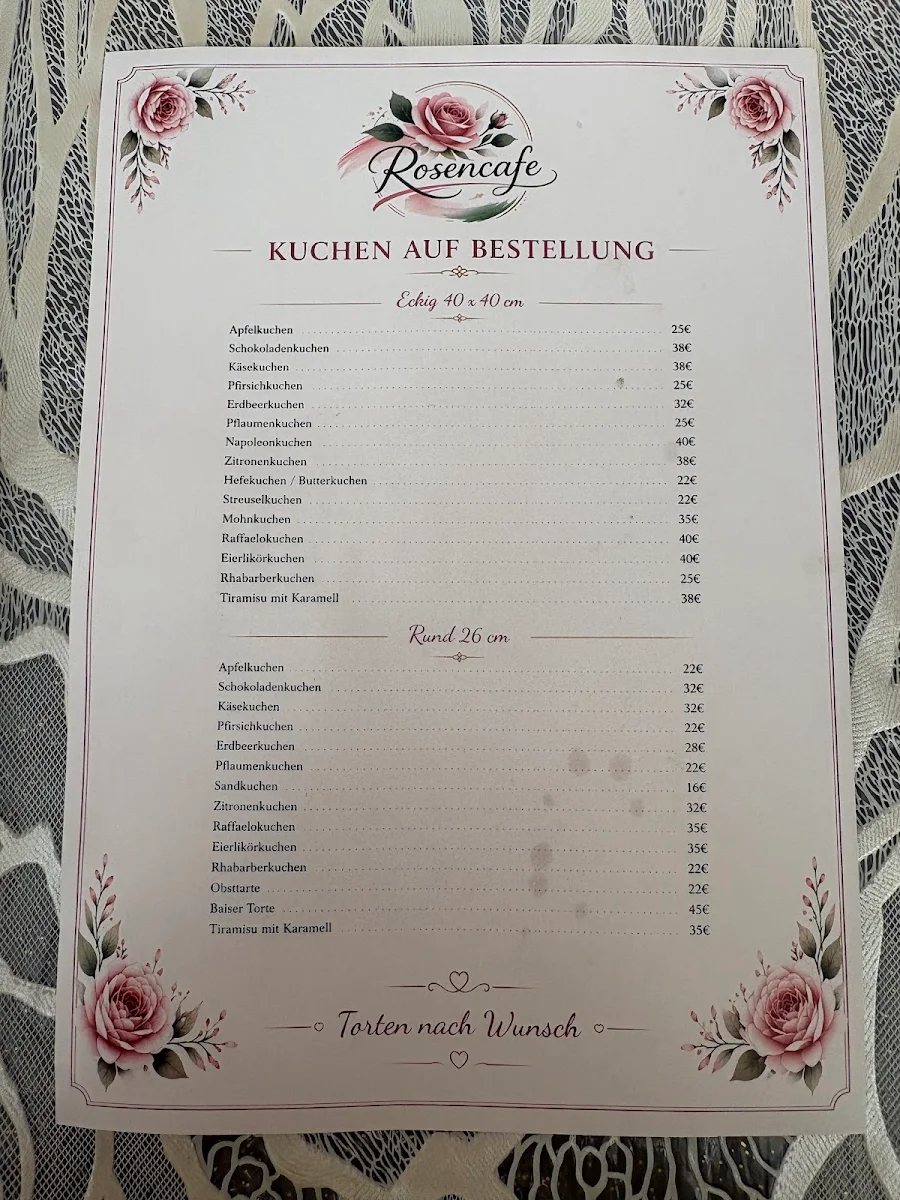 Rosencafe
KUCHEN AUF BESTELLUNG
Eckig 40 x 40 cm
Apfelkuchen 25€
Schokoladenkuchen 38€
Käsekuchen 38€
Pfirsichkuchen 25€
Erdbeerkuchen 32€
Pflaumenkuchen 25€
Napoleonkuchen 40€
Zitronenkuchen 38€
Hefekuchen / Butterkuchen 22€
Streuselkuchen 22€
Mohnkuchen 35€
Raffaelokuchen 40€
Eierlikörkuchen 40€
Rhabarberkuchen 25€
Tiramisu mit Karamell 38€
Rund 26 cm
Apfelkuchen 22€
Schokoladenkuchen 32€
Käsekuchen 32€
Pfirsichkuchen 22€
Erdbeerkuchen 28€
Pflaumenkuchen 22€
Sandkuchen 16€
Zitronenkuchen 32€
Raffaelokuchen 35€
Eierlikörkuchen 35€
Rhabarberkuchen 22€
Obsttarte 22€
Baiser Torte 45€
Tiramisu mit Karamell 35€
Torten nach Wunsch